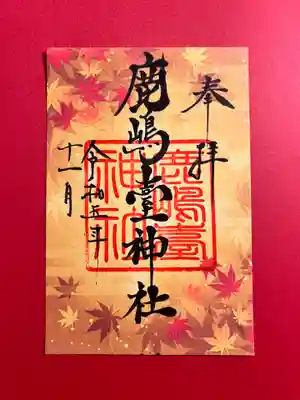 奉拝
鹿嶋臺神社
鹿嶋臺神社
令和五年
十一月